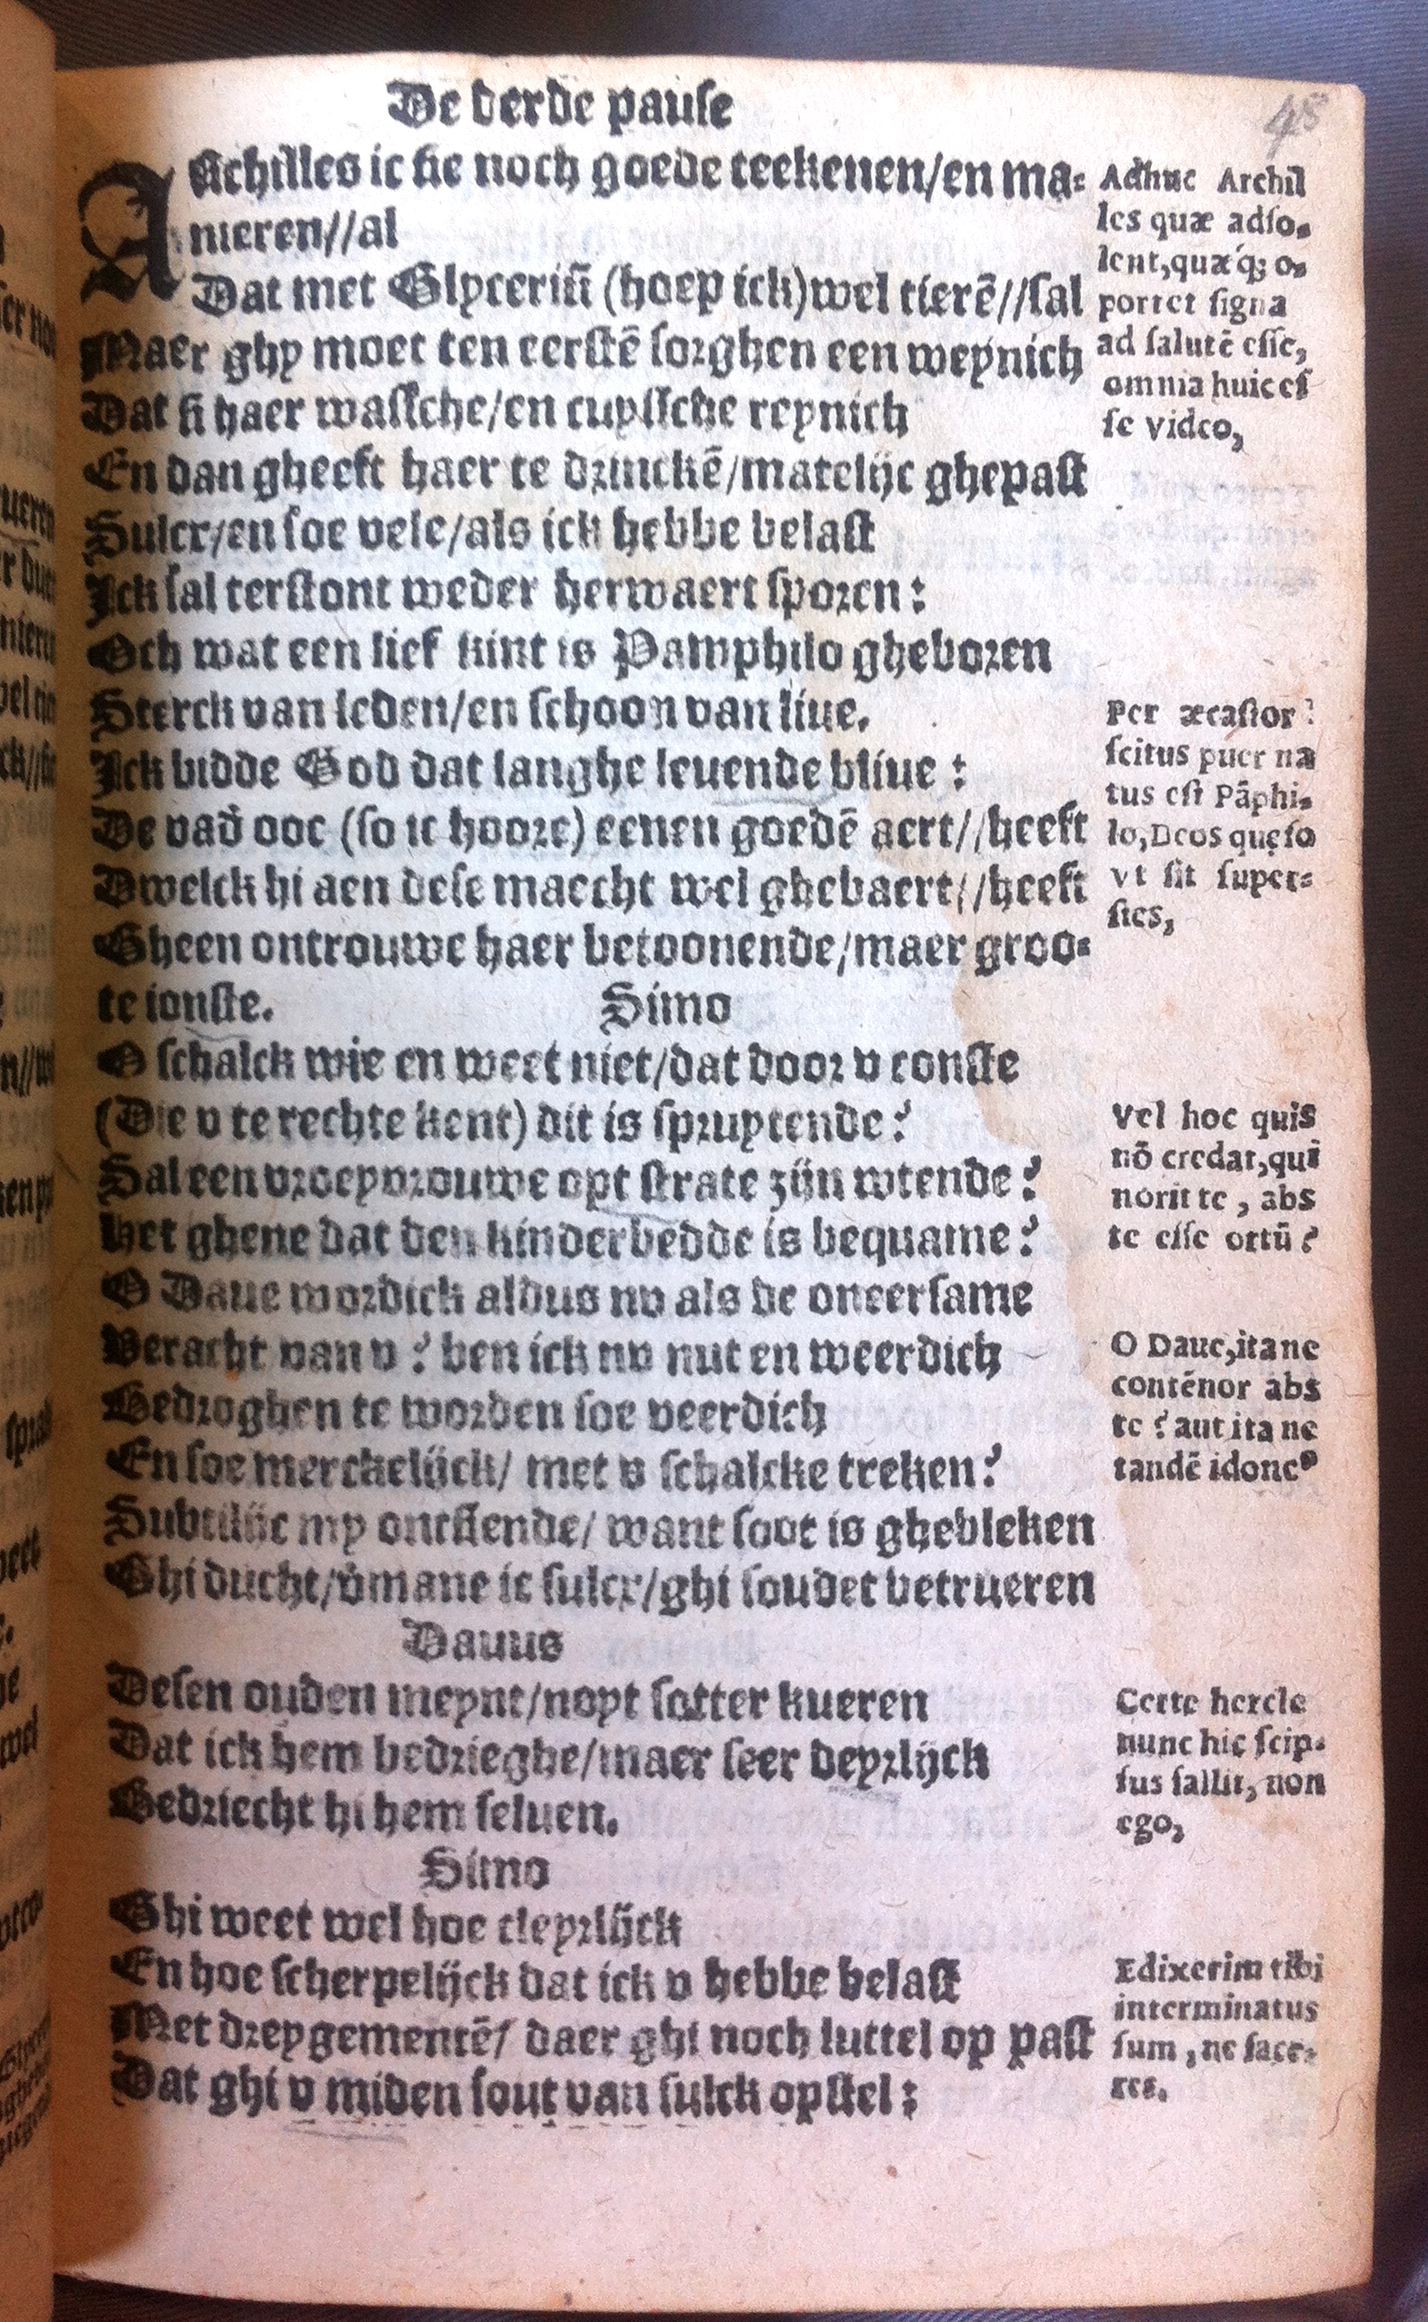 De derde pause
48
AAchilles ic sie noch goede teekenen/en ma-
nieren//al
Dat met Glyceriū (hoep ick) wel tierē//sal
Maer ghy moet ten eerstē sorghen een weynich
Dat si haer wassche/en cuyssche reynich
En dan gheeft haer te drinckē/matelijc ghepast
Sulcx/en soe vele/als ick hebbe belast
Ick sal terstont weder herwaert sporen:
Och wat een lief kint is Pamphilo gheboren
Sterck van leden/en schoon van liue.
Ick bidde God dat langhe leuende bliue:
De vad̄ ooc (so ic hoore) eenen goedē aert//heeft
Dwelck hi aen dese maecht wel ghebaert//heeft
Gheen ontrouwe haer betoonende/maer groo-
te ionste. Simo
O schalck wie en weet niet/dat door v conste
(Die v te rechte kent) dit is spruytende?
Sal een vroeyvrouwe opt strate zijn wtende?
Het ghene dat den kinderbedde is bequame?
O Daue wordick aldus nv als de oneersame
Veracht van v? ben ick nv nut en weerdich
Gedroghen te worden soe veerdich
En soe merckelijck/ met v schalcke treken?
Subtilijc my ontsiende/ want soot is ghebleken
Ghi ducht/v̄mane ic sulcx/ghi soudet betrueren
Dauus
Desen ouden meynt/noyt sotter kueren
Dat ick hem bedrieghe/maer seer deyrlijck
Bedriecht hi hem seluen.
Simo
Ghi weet wel hoe cleyrlijck
En hoe scherpelijck dat ick v hebbe belast
Met dreygementē/ daer ghi noch luttel op past
Dat ghi v miden sout van sulck opstel:
Adhuc Archil
les quæ adso-
lent,quæ´q; o-
portet signa
ad salutē esse,
omnia huic es
se video,
Per æcastor
scitus puer na
tus est Pāphi-
lo,Deos quęso
vt sit super-
stes,
Vel hoc quis
nō credat,qui
norit te, abs
te esse ortū?
O Daue,itane
contēnor abs
te? aut ita ne
tandē idoneꝰ
Certe hercle
nunc hic seip-
sus fallit, non
ego,
Edixerim tibi
interminatus
sum, ne face-
res.